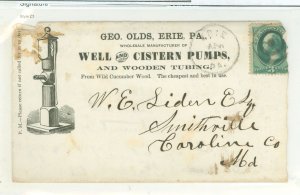 Signature
GEO. OLDS, ERIE, PA.,
WHOLESALE MANUFACTURER OF
WELL AND CISTERN PUMPS,
AND WOODEN TUBING,
From Wild Cucumber Wood. The cheapest and best in use.
P. M.—Please return if not called for in
W. E. Liden Esq
Smithville
Caroline Co
Md